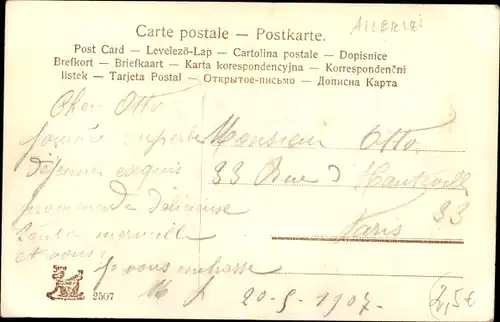 AllERlEi
Carte postale — Postkarte.
Post Card — Levelező-Lap — Cartolina postale — Dopisnice
Brefkort — Briefkaart — Karta korespondencyjna — Korrespondenčni
listek — Tarjeta Postal — Открытое-письмо — Дописна Карта
Cher Otto
journée superbe
déjeuner exquis
promenade délicieuse
toute merveille
et vous?
je vous embrasse
20-5-1907
Monsieur Otto
33 Rue d'Hauteville
33
Paris
2507
2,5€